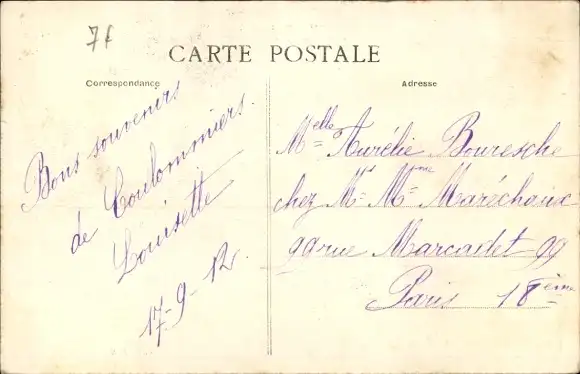 7f
CARTE POSTALE
Correspondance
Adresse
Bons souvenirs
de Coulommiers.
Louisette
17-9-12.
Melle Aurélie Bouresche
chez Mr Mme Maréchaux
99 rue Marcadet 99
Paris 18ème